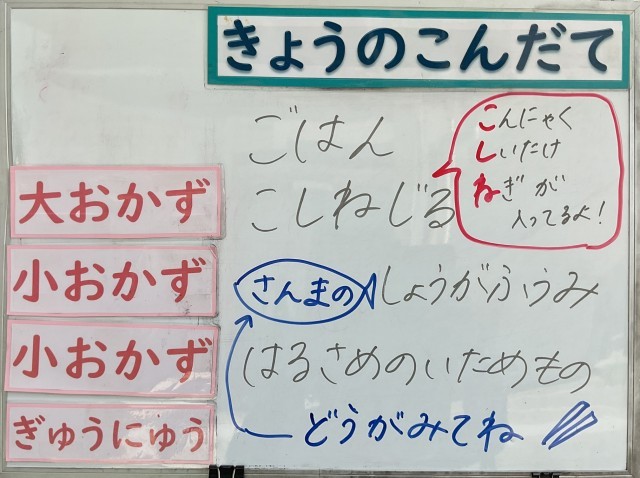 きょうのこんだて
ごはん
大おかず
こしねじる
こんにゃく
しいたけ
ねぎが
入ってるよ！
小おかず
さんまの しょうがふうみ
小おかず
はるさめのいためもの
ぎゅうにゅう
どうがみてね